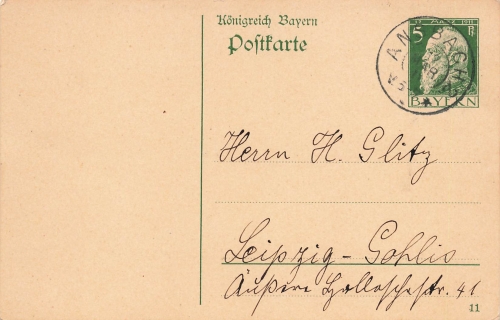 Königreich Bayern
Postkarte
12. MÄRZ 1911
5 Pf
ANSBACH
BAYERN
Herrn H. Glitz
Leipzig-Gohlis
Äußere Hallesche str. 41
11